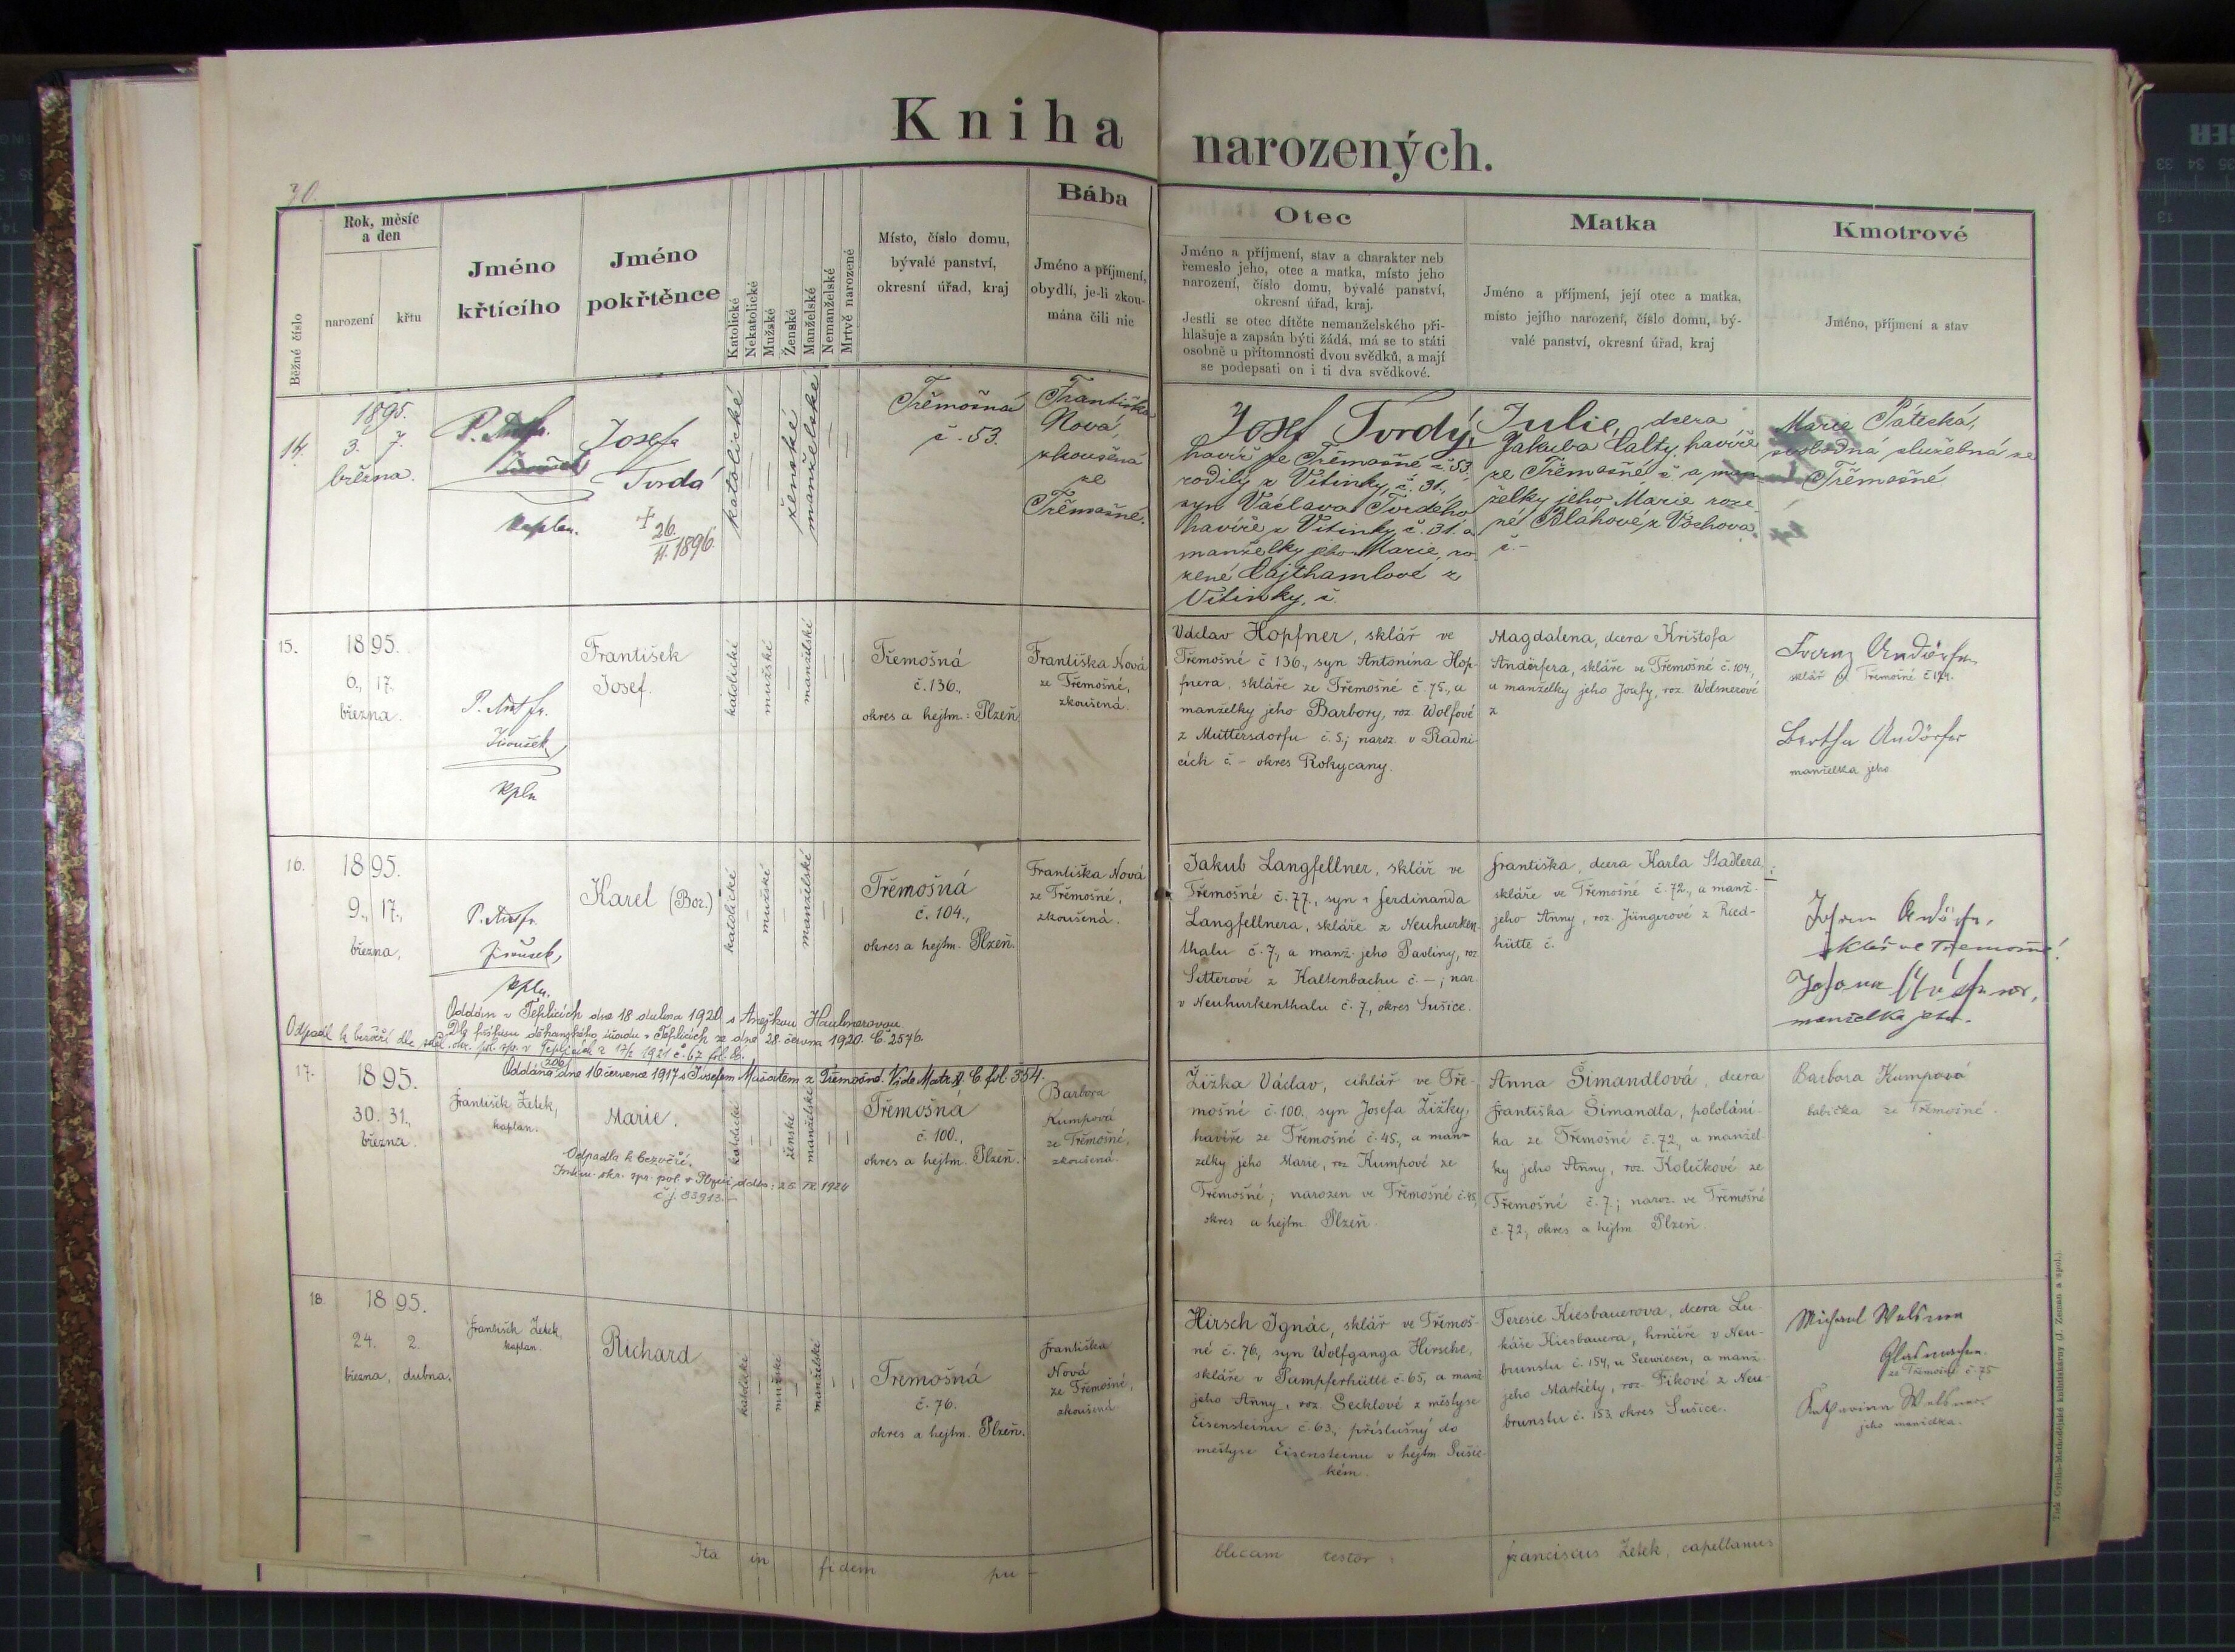 Kniha narozených.
30.
Běžné číslo
Rok, měsíc
a den
narození
křtu
Jméno
křtícího
Jméno
pokřtěnce
Katolické
Nekatolické
Mužské
Ženské
Manželské
Nemanželské
Mrtvě narozené
Místo, číslo domu,
bývalé panství,
okresní úřad, kraj
Bába
Jméno a příjmení,
obydlí, je-li zkou-
mána čili nic
Otec
Jméno a příjmení, stav a charakter neb
řemeslo jeho, otec a matka, místo jeho
narození, číslo domu, bývalé panství,
okresní úřad, kraj.
Jestli se otec dítěte nemanželského při-
hlašuje a zapsán býti žádá, má se to státi
osobně u přítomnosti dvou svědků, a mají
se podepsati on i ti dva svědkové.
Matka
Jméno a příjmení, její otec a matka,
místo jejího narození, číslo domu, bý-
valé panství, okresní úřad, kraj
Kmotrové
Jméno, příjmení a stav
14.
1895.
3. 7.
března.
P.
Jiroušek
kaplan.
Josefa
Tvrdá
† 26.
4. 1896.
katolické
ženské
manželské
Třemošná
č. 53.
Františka
Nová,
zkoušená
ze
Třemošné.
Josef Tvrdý,
havíř ze Třemošné č. 53,
rodilý z Vitinky, č. 31.,
syn Václava Tvrdého
havíře z Vitinky č. 31. a
manželky jeho Marie, ro
zené Cajthamlové z
Vitinky, č.
Julie, dcera
Jakuba Calty, havíře
ze Třemošné č. a man
želky jeho Marie roze-
né Bláhové z Vochova
č. -
Marie Pátecká,
svobodná služebná ze
Třemošné
15.
1895.
6., 17.
března.
P.
Jiroušek
kpln
František
Josef.
katolické
mužské
manželské
Třemošná
č. 136.,
okres a hejtm: Plzeň
Františka Nová
ze Třemošné,
zkoušená.
Václav Hopfner, sklář ve
Třemošné č 136., syn Antonína Hop-
fnera, skláře ze Třemošné č. 75., a
manželky jeho Barbory, roz. Wolfové
z Muttersdorfu č. 5.; naroz. v Radni-
cích č. - okres Rokycany.
Magdalena, dcera Krištofa
Andörfera, skláře ve Třemošné č. 104,
a manželky jeho Josefy, roz. Welsnerové
z
Franz Andörfer
sklář Třemošné č 174.
Bertha Andörfer
manželka jeho
16.
1895.
9., 17.,
března,
P.
Jiroušek,
kpln.
Karel (Bor.)
katolické
mužské
manželské
Třemošná
č. 104.,
okres a hejtm. Plzeň.
Františka Nová
ze Třemošné,
zkoušená.
Jakub Langfellner, sklář ve
Třemošné č. 77., syn Ferdinanda
Langfellnera, skláře z Neuhurken-
thalu č. 7., a manž. jeho Pavliny, roz.
Sitterové z Kaltenbachu č. - ; nar.
v Neuhurkenthalu č. 7., okres Sušice.
Františka, dcera Karla Stadlera,
skláře ve Třemošné č. 72., a manž.
jeho Anny, roz. Jüngerové z Ried-
hütte č.
sklář ve Třemošné!
manželka jeho.
Oddán v Teplicích dne 18 dubna 1920 s Anežkou
děkanského úřadu v Teplicích ze dne 28. června 1920. Č. 2576.
Odpadl k bezvěří dle sděl. okr. pol. spr. v Teplicích z 17/2 1921 č. 67
17.
Oddána dne 10 července 1917 s Josefem Mušutem z Třemošné. Vide Matr. C fol. 354.
1895.
30. 31.,
března.
František Zetek,
kaplan.
Marie.
Odpadla k bezvěří.
okr. spr. pol. v Plzni ddto: 25. IX. 1924
č. j. 83913.-
katolické
ženské
manželské
Třemošná
č. 100.,
okres a hejtm. Plzeň.
Barbora
Kumpová
ze Třemošné,
zkoušená.
Žižka Václav, cihlář ve Tře-
mošné č. 100., syn Josefa Žižky,
havíře ze Třemošné č. 45., a man-
želky jeho Marie, roz. Kumpové ze
Třemošné; narozen ve Třemošné č. 45,
okres a hejtm Plzeň.
Anna Šimandlová, dcera
Františka Šimandla, pololání-
ka ze Třemošné č. 72., a manžel-
ky jeho Anny, roz. Kolečkové ze
Třemošné č. 7.; naroz. ve Třemošné
č. 72, okres a hejtm Plzeň.
Barbora Kumpová
babička ze Třemošné.
18
1895.
24. 2.
března, dubna,
František Zetek,
kaplan.
Richard
katolické
mužské
manželské
Třemošná
č. 76.
okres a hejtm. Plzeň.
Františka
Nová
ze Třemošné,
zkoušená
Hirsch Ignác, sklář ve Třemoš-
né č. 76, syn Wolfganga Hirsche,
skláře v Pampferhütte č. 65, a manž
jeho Anny, roz. Secklové z městyse
Eisensteinu č 63., příslušný do
městyse Eisensteinu v hejtm. Sušic-
kém.
Teresie Kiesbauerova, dcera Lu-
káše Kiesbauera, hrnčíře v Neu-
brunstu č. 154, u Seewiesen, a manž
jeho Markéty, roz. Fikové z Neu-
brunstu č. 153 okres Sušice.
Michael Welsner
Glasmacher
ze Třemošné č. 75
Katharina Welsner
jeho manželka.
Ita in fidem pu-
blicam testor:
Franciscus Zetek, capellanus
Tisk Cyrillo-Methodějské knihtiskárny (J. Zeman a spol.).